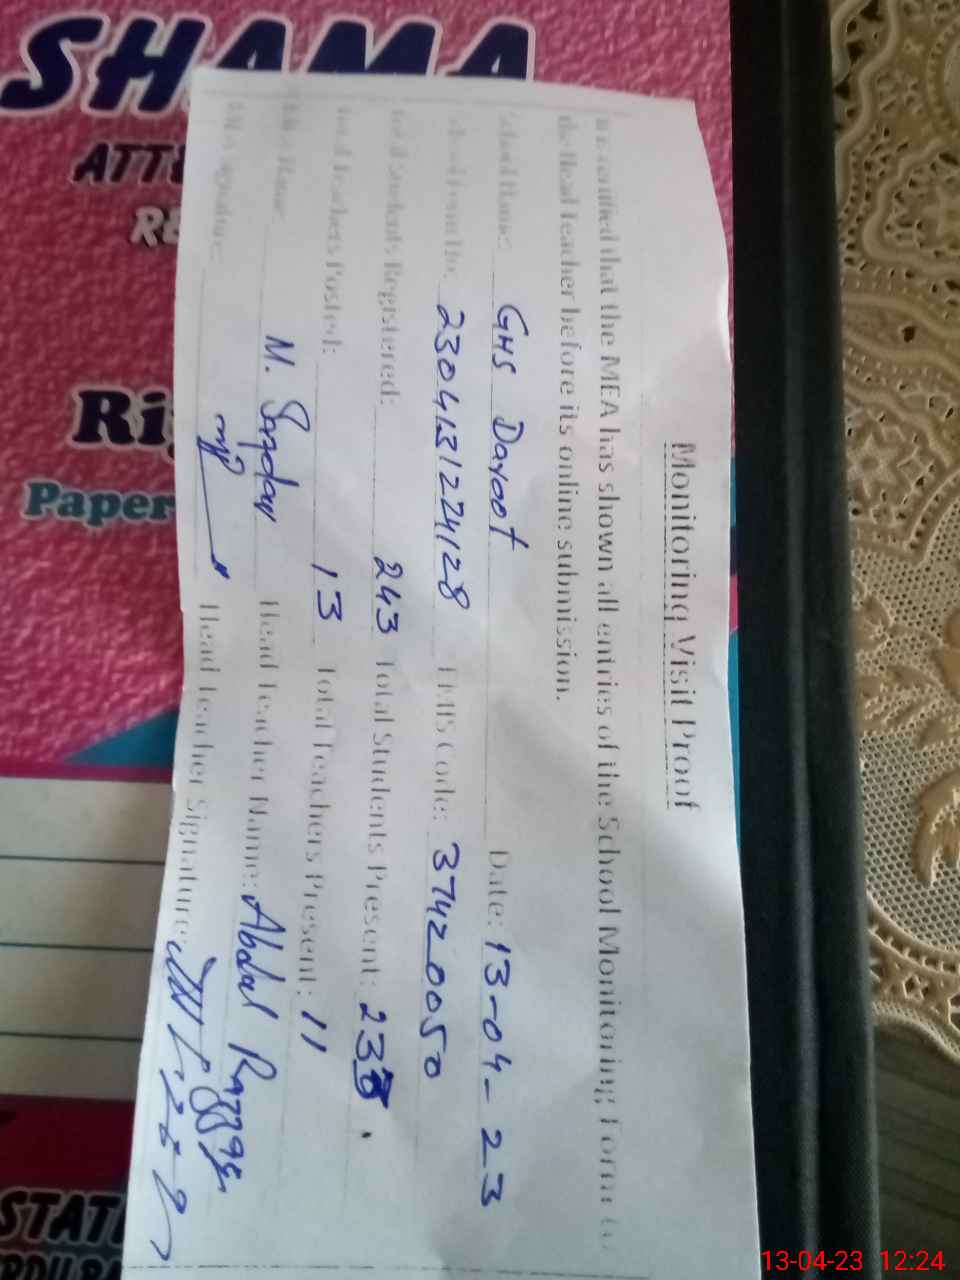 SHAMA
Paper
Monitoring Visit Proof
It is certified that the MEA has shown all entries of the School Monitoring Form to
the Head Teacher before its online submission.
School Name: GHS Daroot Date: 13-04-23
2304131224128 EMIS Code: 37420050
Total Students Registered: 243 Total Students Present:
Total Teachers Posted: 13 Total Teachers Present: 11
MEA Name: M. Head Teacher Name: Abdul Razzaq
MEA Signature: Head Teacher Signature:
13-04-23 12:24